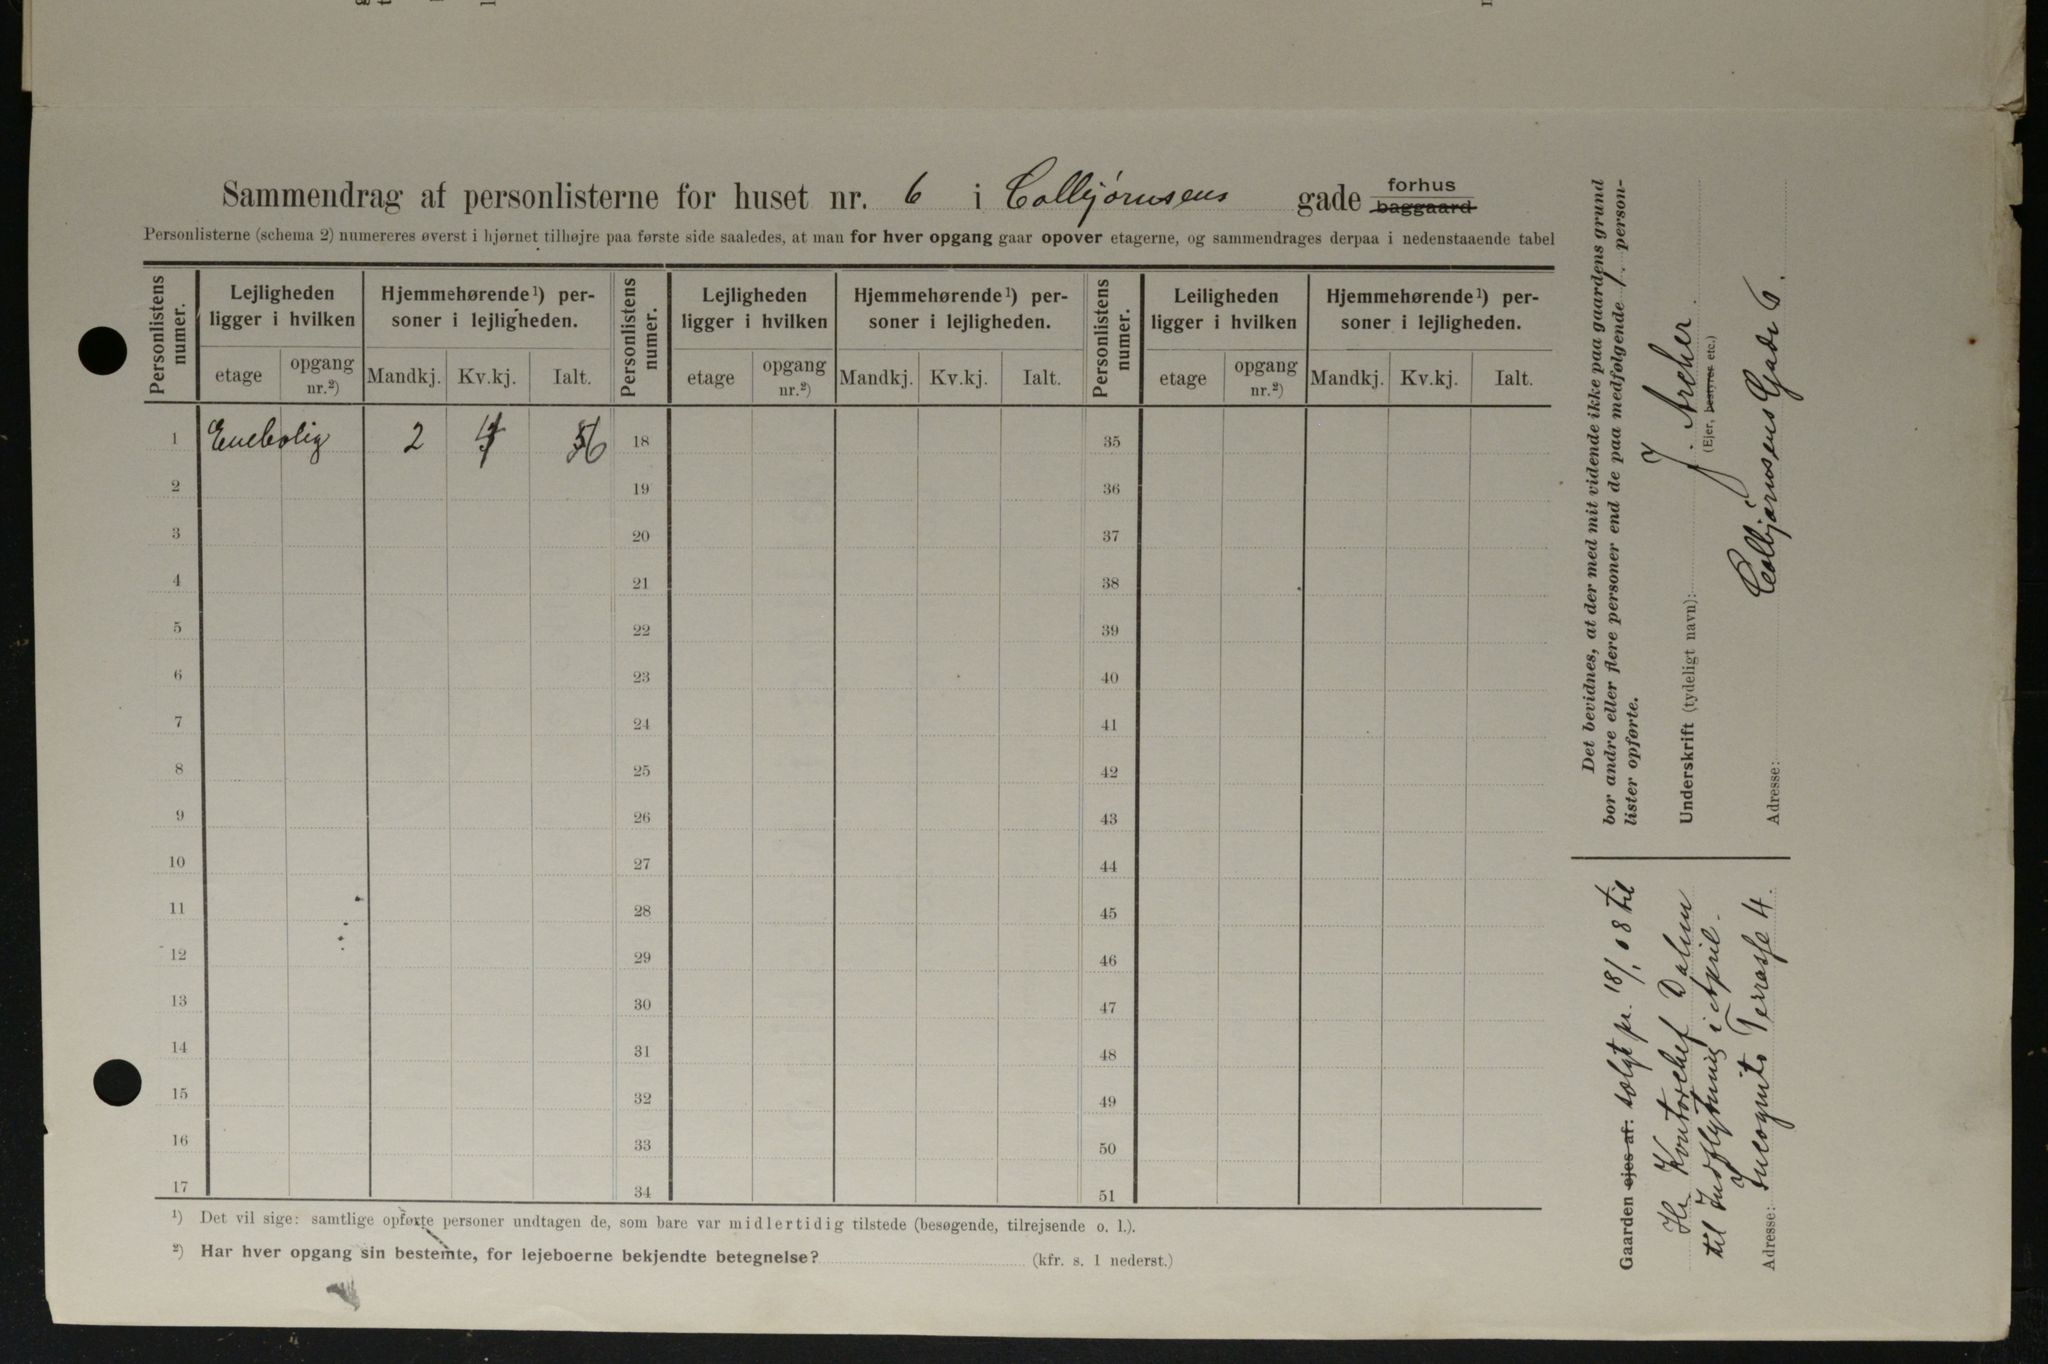 Sammendrag af personlisterne for huset nr. 6 i Colbjørnsens gade forhus baggaard
Personlisterne (schema 2) numereres øverst i hjørnet tilhøjre paa første side saaledes, at man for hver opgang gaar opover etagerne, og sammendrages derpaa i nedenstaaende tabel
Personlistens numer. Lejligheden ligger i hvilken Hjemmehørende¹) personer i lejligheden. Personlistens numer. Lejligheden ligger i hvilken Hjemmehørende¹) personer i lejligheden. Personlistens numer. Leiligheden ligger i hvilken Hjemmehørende¹) personer i lejligheden.
etage opgang nr.²) Mandkj. Kv.kj. Ialt. etage opgang nr.²) Mandkj. Kv.kj. Ialt. etage opgang nr.²) Mandkj. Kv.kj. Ialt.
1 Enebolig 2 4 6 18 35
2 19 36
3 20 37
4 21 38
5 22 39
6 23 40
7 24 41
8 25 42
9 26 43
10 27 44
11 28 45
12 29 46
13 30 47
14 31 48
15 32 49
16 33 50
17 34 51
¹) Det vil sige: samtlige opførte personer undtagen de, som bare var midlertidig tilstede (besøgende, tilrejsende o. l.).
²) Har hver opgang sin bestemte, for lejeboerne bekjendte betegnelse? (kfr. s. 1 nederst.)
Det bevidnes, at der med mit vidende ikke paa gaardens grund
bor andre eller flere personer end de paa medfølgende 1. person-
lister opførte.
Underskrift (tydeligt navn): J. Archer.
(Ejer, bestyrer etc.)
Adresse: Colbjørnsens Gade 6.
Gaarden ejes af: solgt pr. 18/1 08 til
Hr Kontorchef Dalen
til Indflytning i April.
Adresse: Incognito Terrasse 4.